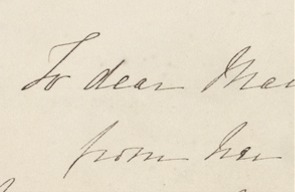 To dear
from her